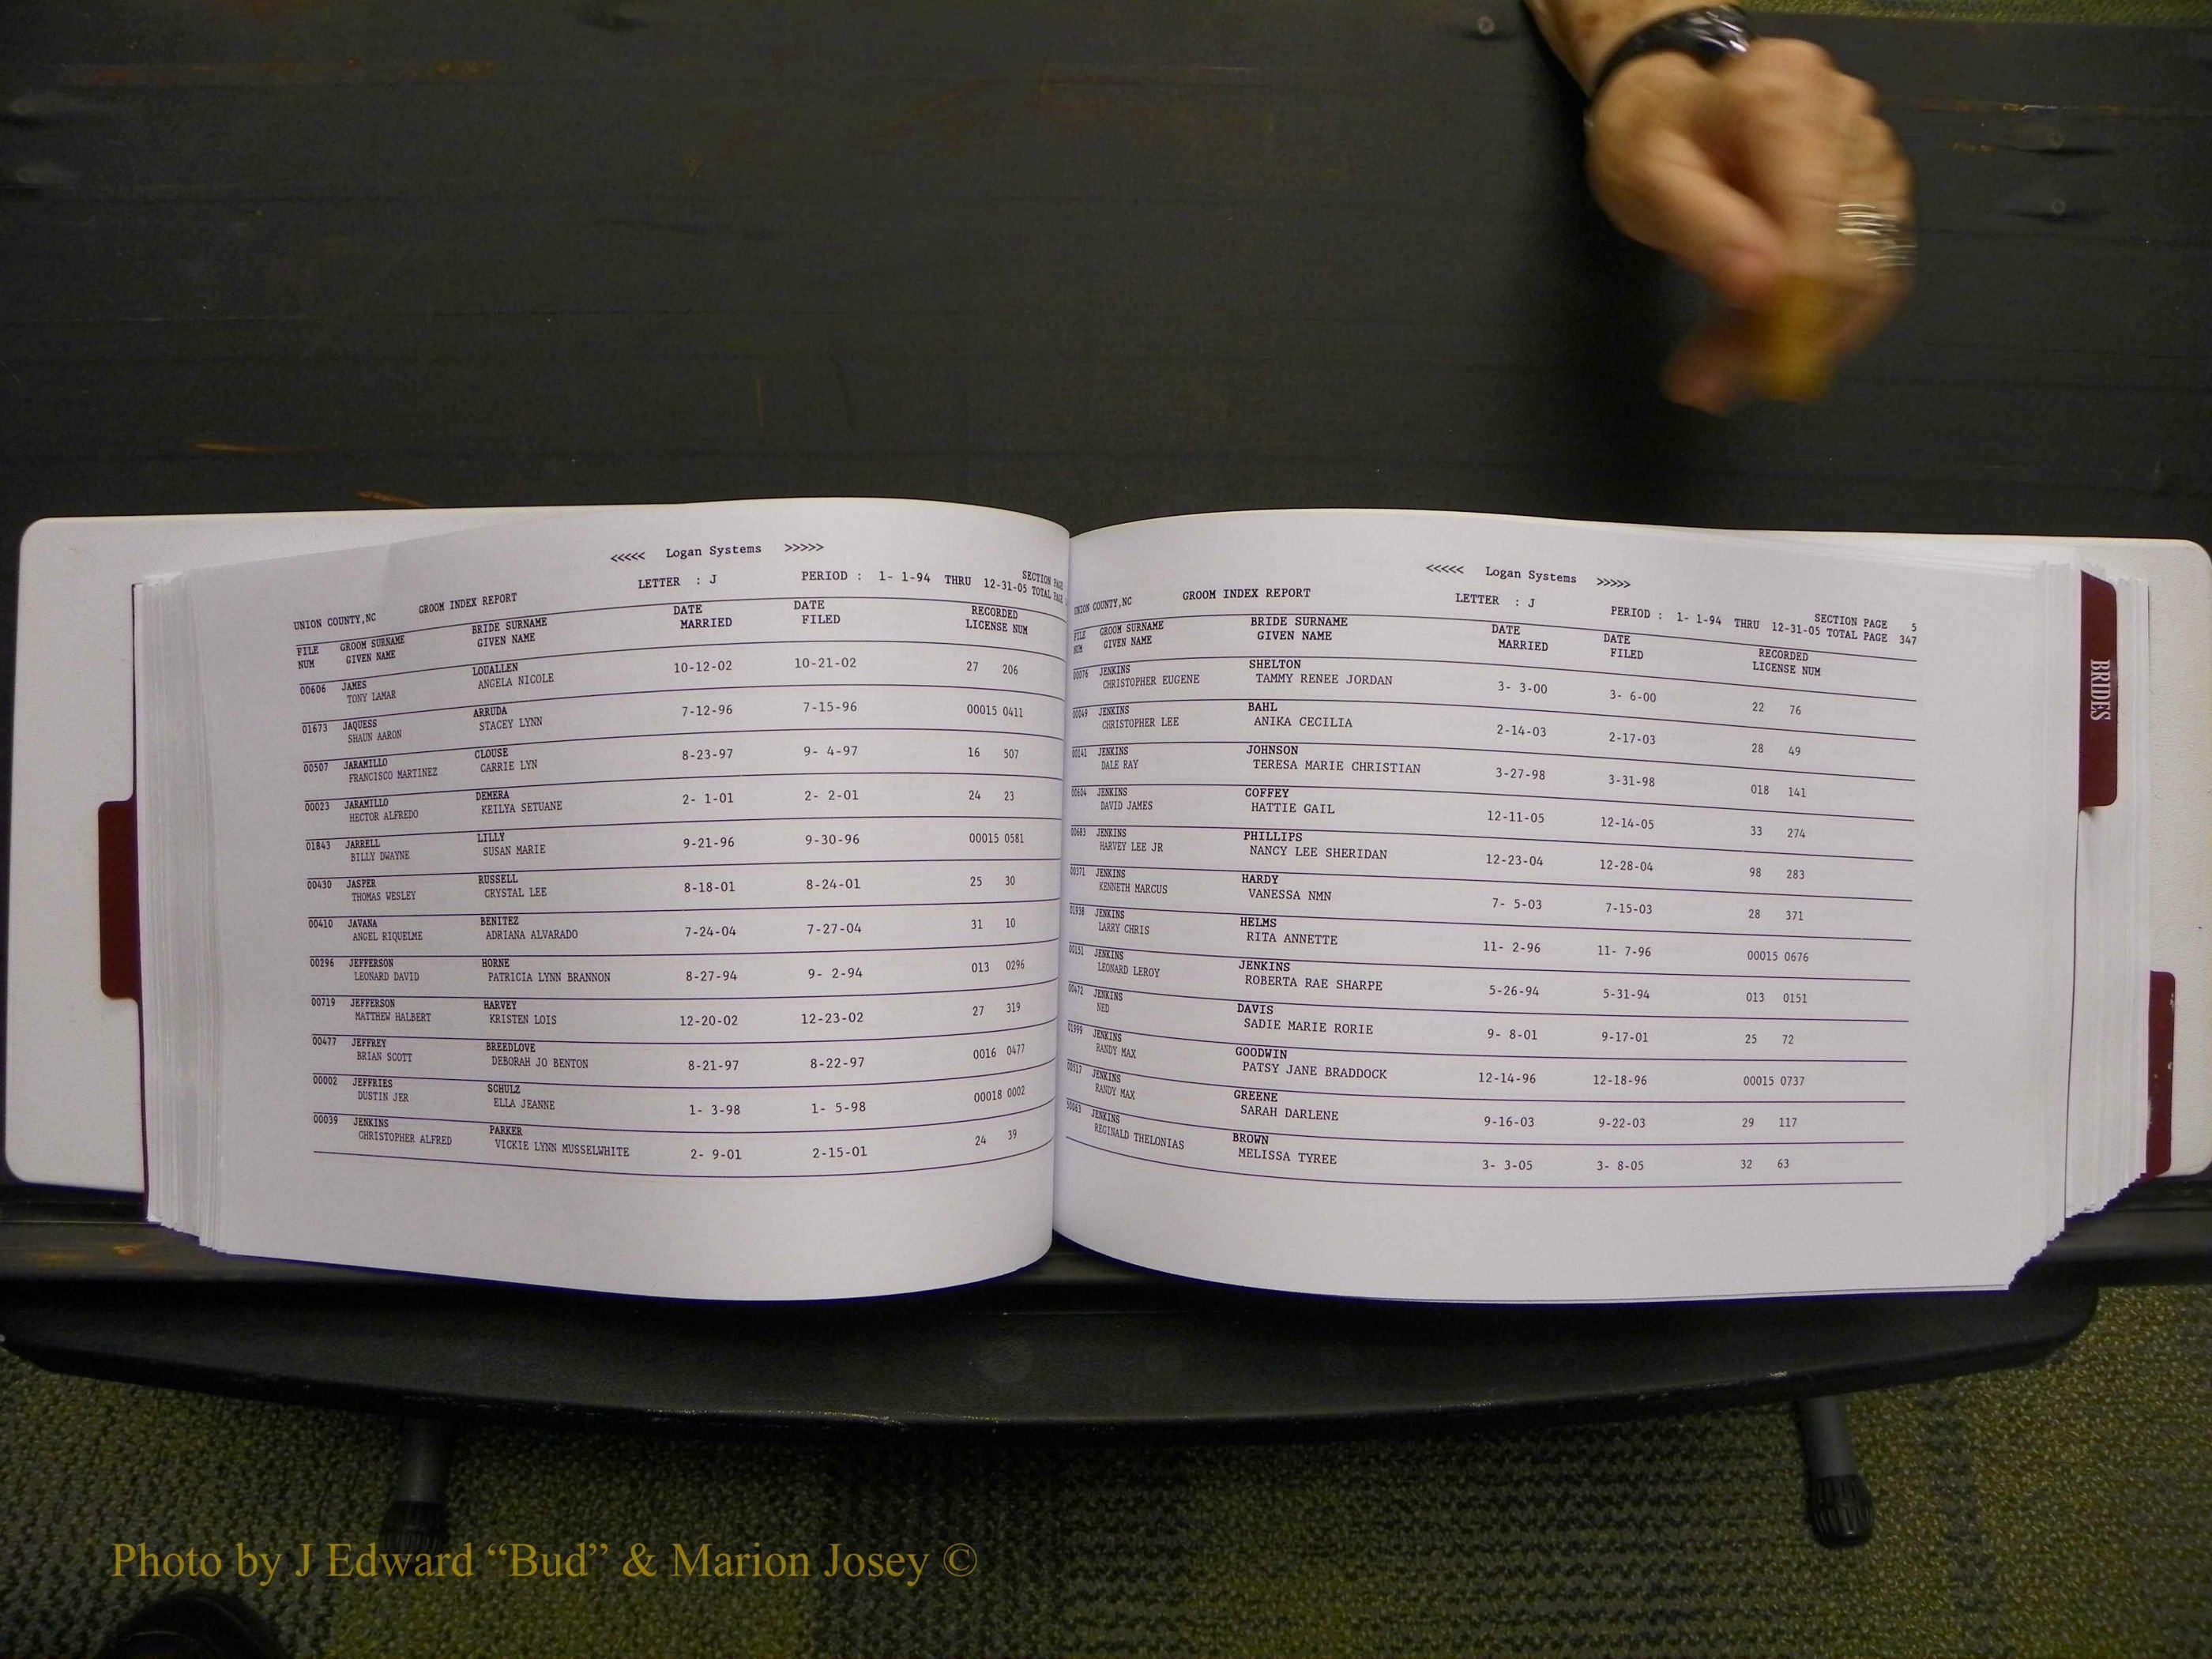 <<<<< Logan Systems >>>>>
UNION COUNTY,NC GROOM INDEX REPORT LETTER : J PERIOD : 1- 1-94 THRU 12-31-05 SECTION PAGE
TOTAL PAGE
FILE GROOM SURNAME BRIDE SURNAME DATE DATE RECORDED
NUM GIVEN NAME GIVEN NAME MARRIED FILED LICENSE NUM
00606 JAMES LOUALLEN 10-12-02 10-21-02 27 206
TONY LAMAR ANGELA NICOLE
01673 JAQUESS ARRUDA 7-12-96 7-15-96 00015 0411
SHAUN AARON STACEY LYNN
00507 JARAMILLO CLOUSE 8-23-97 9- 4-97 16 507
FRANCISCO MARTINEZ CARRIE LYN
00023 JARAMILLO DEMERA 2- 1-01 2- 2-01 24 23
HECTOR ALFREDO KEILYA SETUANE
01843 JARRELL LILLY 9-21-96 9-30-96 00015 0581
BILLY DWAYNE SUSAN MARIE
00430 JASPER RUSSELL 8-18-01 8-24-01 25 30
THOMAS WESLEY CRYSTAL LEE
00410 JAVANA BENITEZ 7-24-04 7-27-04 31 10
ANGEL RIQUELME ADRIANA ALVARADO
00296 JEFFERSON HORNE 8-27-94 9- 2-94 013 0296
LEONARD DAVID PATRICIA LYNN BRANNON
00719 JEFFERSON HARVEY 12-20-02 12-23-02 27 319
MATTHEW HALBERT KRISTEN LOIS
00477 JEFFREY BREEDLOVE 8-21-97 8-22-97 0016 0477
BRIAN SCOTT DEBORAH JO BENTON
00002 JEFFRIES SCHULZ 1- 3-98 1- 5-98 00018 0002
DUSTIN JER ELLA JEANNE
00039 JENKINS PARKER 2- 9-01 2-15-01 24 39
CHRISTOPHER ALFRED VICKIE LYNN MUSSELWHITE
<<<<< Logan Systems >>>>>
UNION COUNTY,NC GROOM INDEX REPORT LETTER : J PERIOD : 1- 1-94 THRU 12-31-05 SECTION PAGE 5
TOTAL PAGE 347
FILE GROOM SURNAME BRIDE SURNAME DATE DATE RECORDED
NUM GIVEN NAME GIVEN NAME MARRIED FILED LICENSE NUM
00076 JENKINS SHELTON 3- 3-00 3- 6-00 22 76
CHRISTOPHER EUGENE TAMMY RENEE JORDAN
00049 JENKINS BAHL 2-14-03 2-17-03 28 49
CHRISTOPHER LEE ANIKA CECILIA
00141 JENKINS JOHNSON 3-27-98 3-31-98 018 141
DALE RAY TERESA MARIE CHRISTIAN
00604 JENKINS COFFEY 12-11-05 12-14-05 33 274
DAVID JAMES HATTIE GAIL
00683 JENKINS PHILLIPS 12-23-04 12-28-04 98 283
HARVEY LEE JR NANCY LEE SHERIDAN
00371 JENKINS HARDY 7- 5-03 7-15-03 28 371
KENNETH MARCUS VANESSA NMN
01938 JENKINS HELMS 11- 2-96 11- 7-96 00015 0676
LARRY CHRIS RITA ANNETTE
00151 JENKINS JENKINS 5-26-94 5-31-94 013 0151
LEONARD LEROY ROBERTA RAE SHARPE
00472 JENKINS DAVIS 9- 8-01 9-17-01 25 72
NED SADIE MARIE RORIE
01999 JENKINS GOODWIN 12-14-96 12-18-96 00015 0737
RANDY MAX PATSY JANE BRADDOCK
00517 JENKINS GREENE 9-16-03 9-22-03 29 117
RANDY MAX SARAH DARLENE
50063 JENKINS BROWN 3- 3-05 3- 8-05 32 63
REGINALD THELONIAS MELISSA TYREE
BRIDES
Photo by J Edward “Bud” & Marion Josey ©